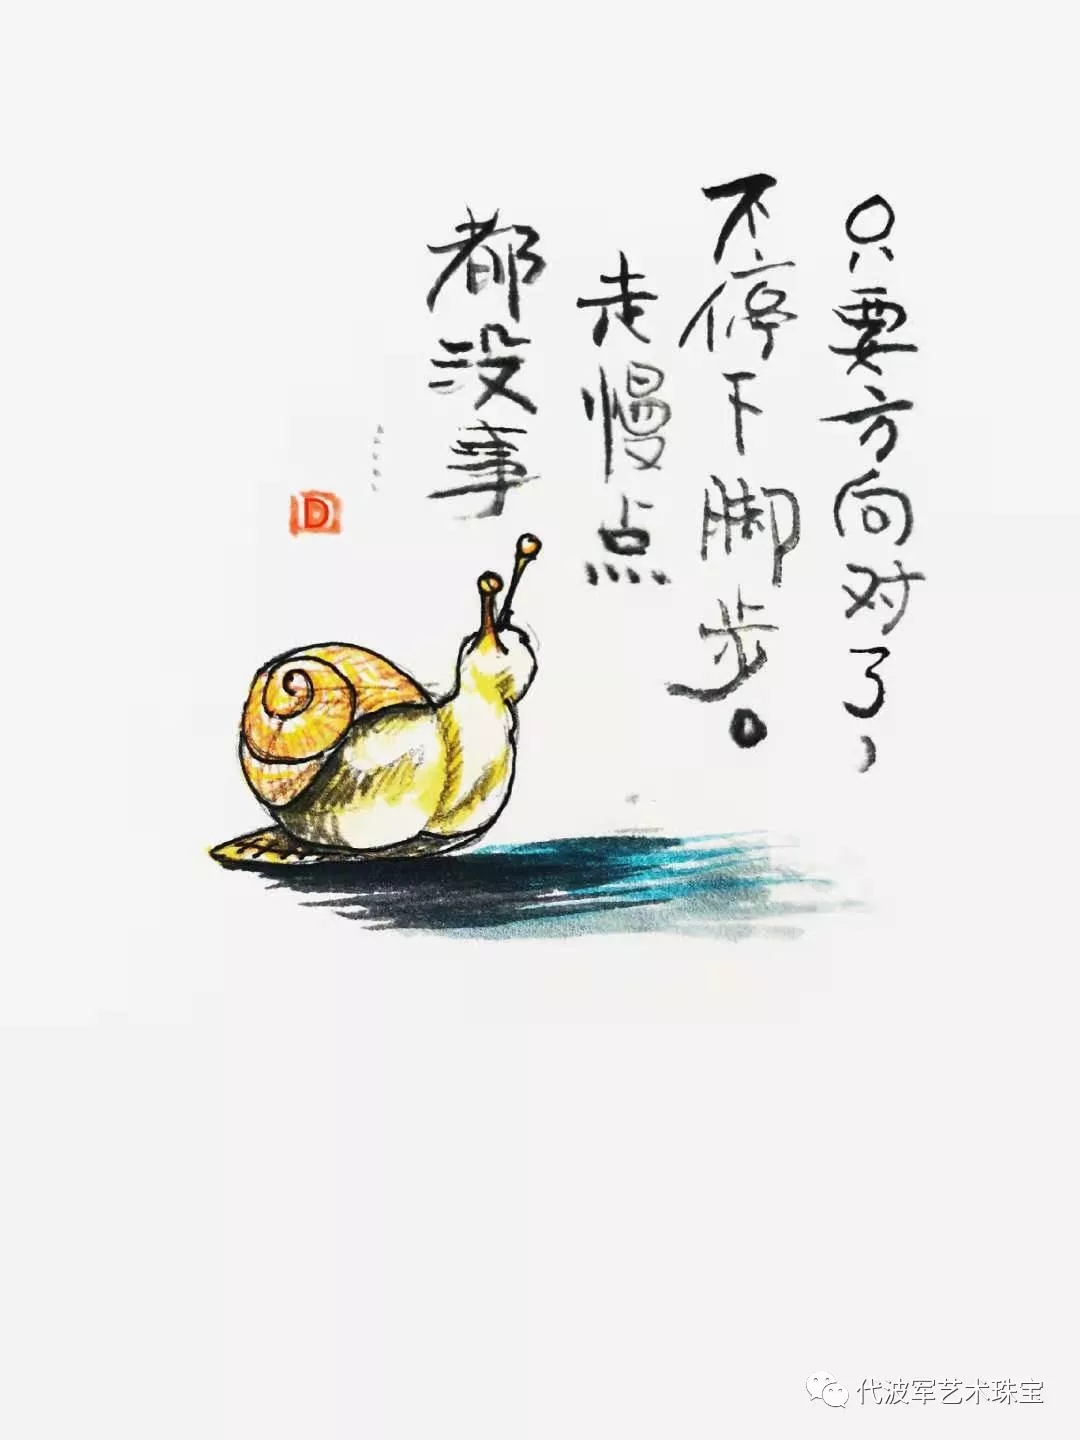 只要方向对了，
不停下脚步。
走慢点
都没事
……
D
代波军艺术珠宝